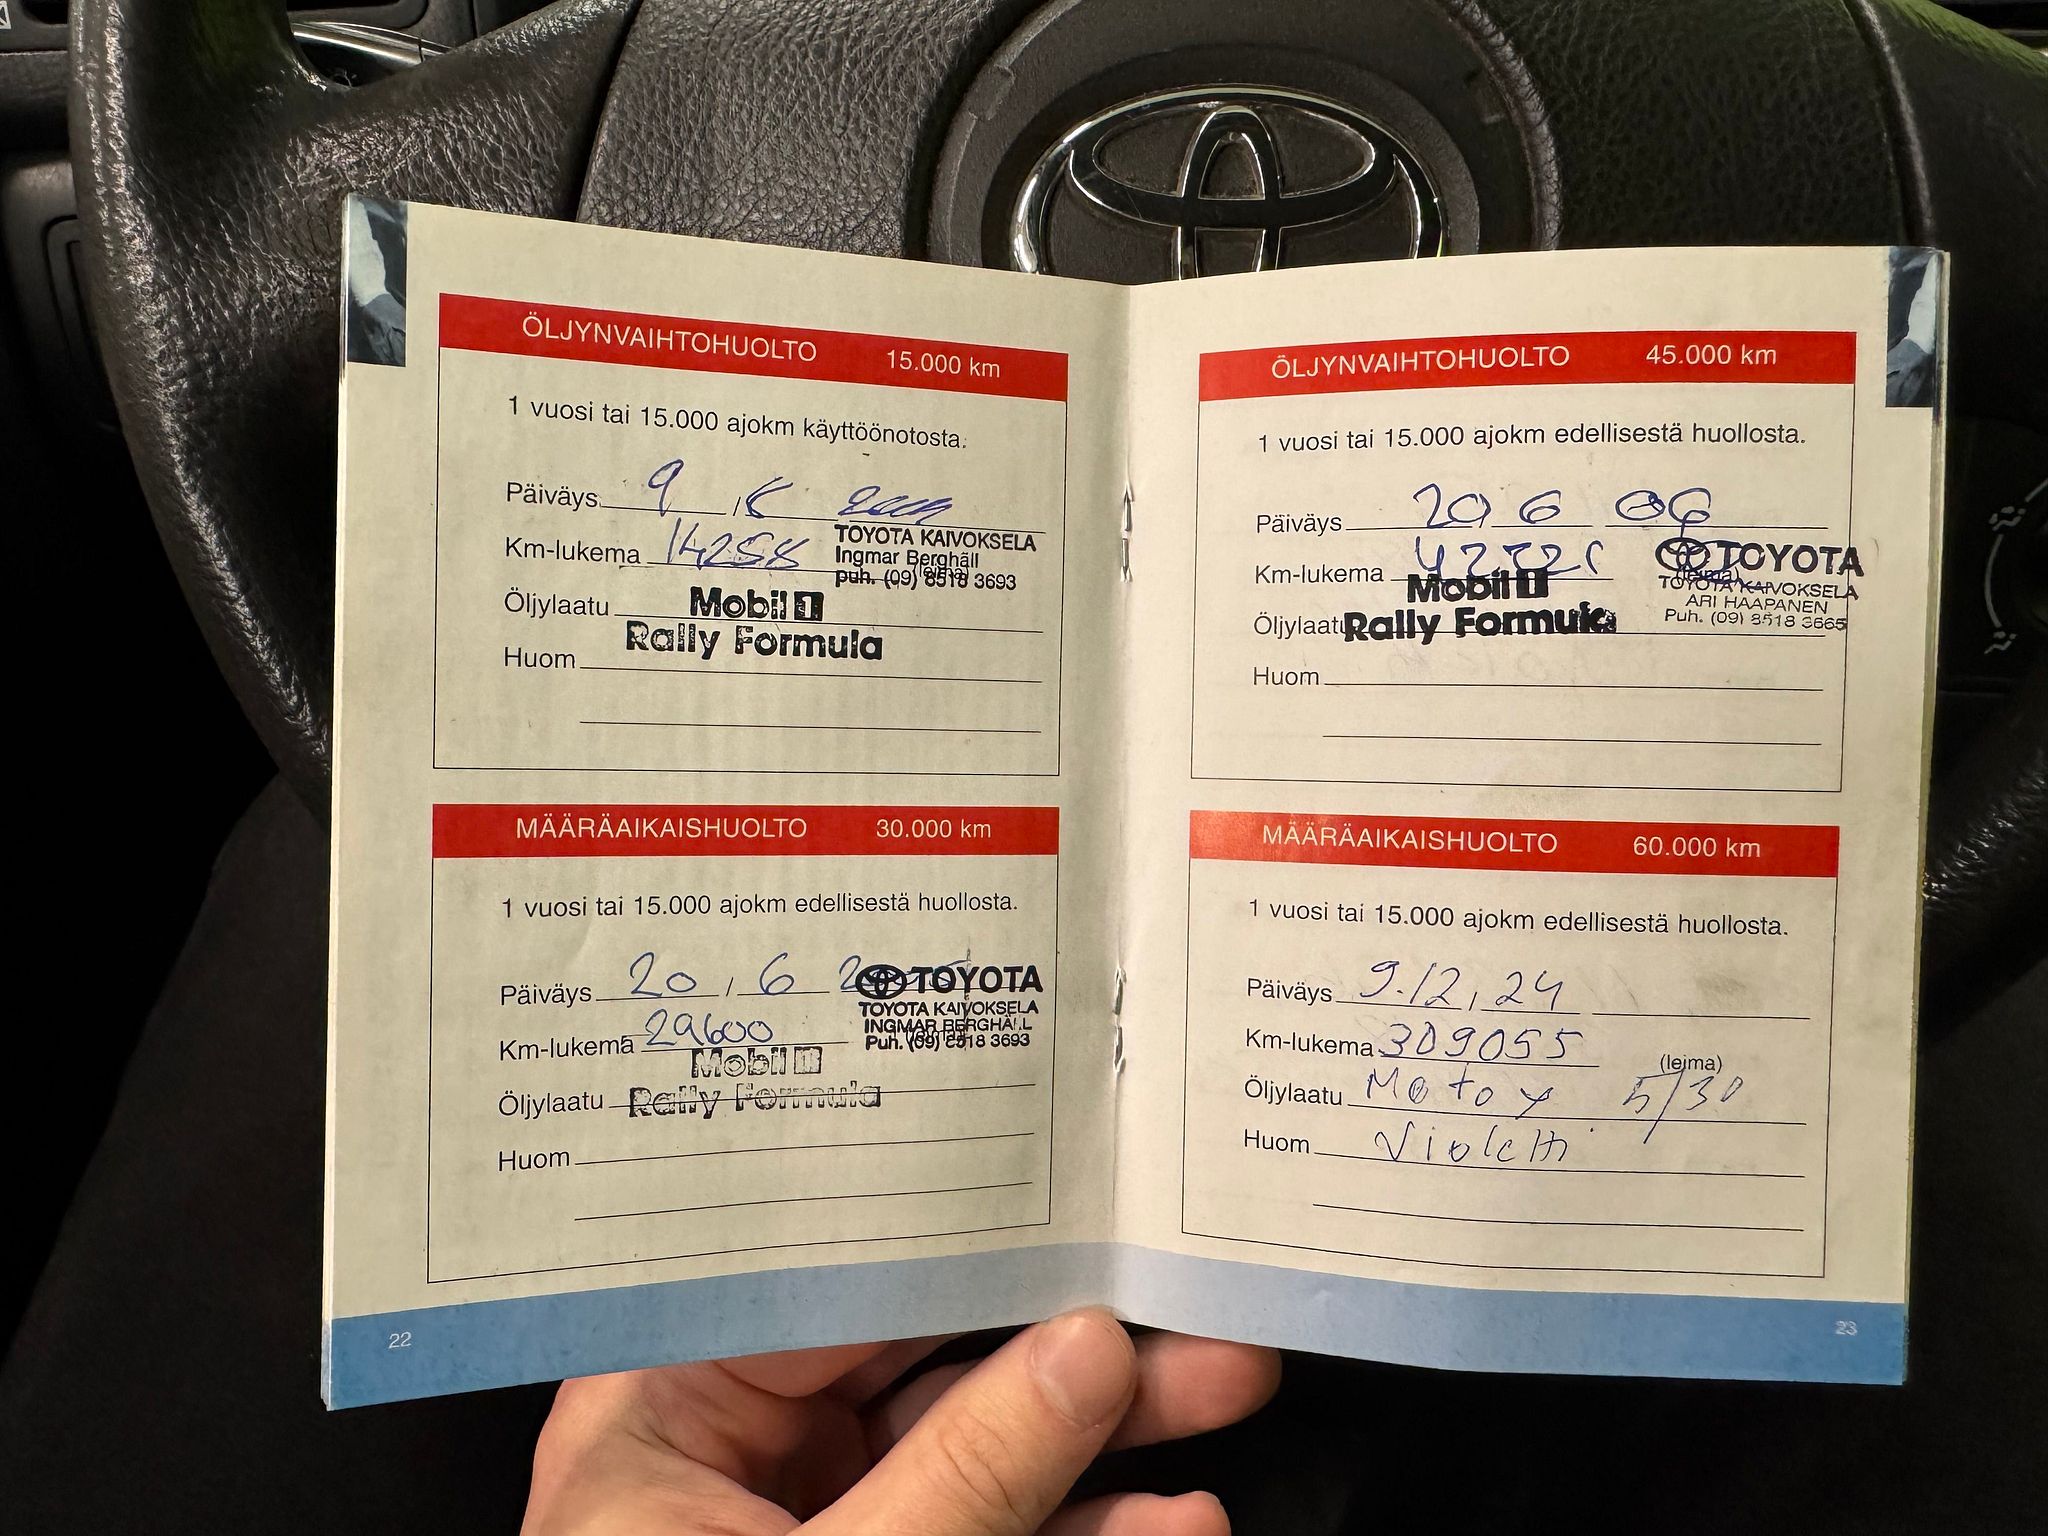 ÖLJYNVAIHTOHUOLTO 15.000 km
1 vuosi tai 15.000 ajokm käyttöönotosta.
Päiväys 9
Km-lukema 14258
TOYOTA KAIVOKSELA
Ingmar Berghäll
puh. (09) 8518 3693
(leima)
Öljylaatu Mobil 1
Rally Formula
Huom
MÄÄRÄAIKAISHUOLTO 30.000 km
1 vuosi tai 15.000 ajokm edellisestä huollosta.
Päiväys 20, 6
TOYOTA
TOYOTA KAIVOKSELA
INGMAR BERGHÄLL
Puh. (09) 8518 3693
(leima)
Km-lukema 29600
Mobil 1
Öljylaatu Rally Formula
Huom
22
ÖLJYNVAIHTOHUOLTO 45.000 km
1 vuosi tai 15.000 ajokm edellisestä huollosta.
Päiväys 20 6 06
Km-lukema
TOYOTA
(leima)
TOYOTA KAIVOKSELA
ARI HAAPANEN
Puh. (09) 8518 3665
Mobil 1
Öljylaatu Rally Formula
Huom
MÄÄRÄAIKAISHUOLTO 60.000 km
1 vuosi tai 15.000 ajokm edellisestä huollosta.
Päiväys 9.12, 24
Km-lukema 309055
(leima)
Öljylaatu Motoy 5/30
Huom
23